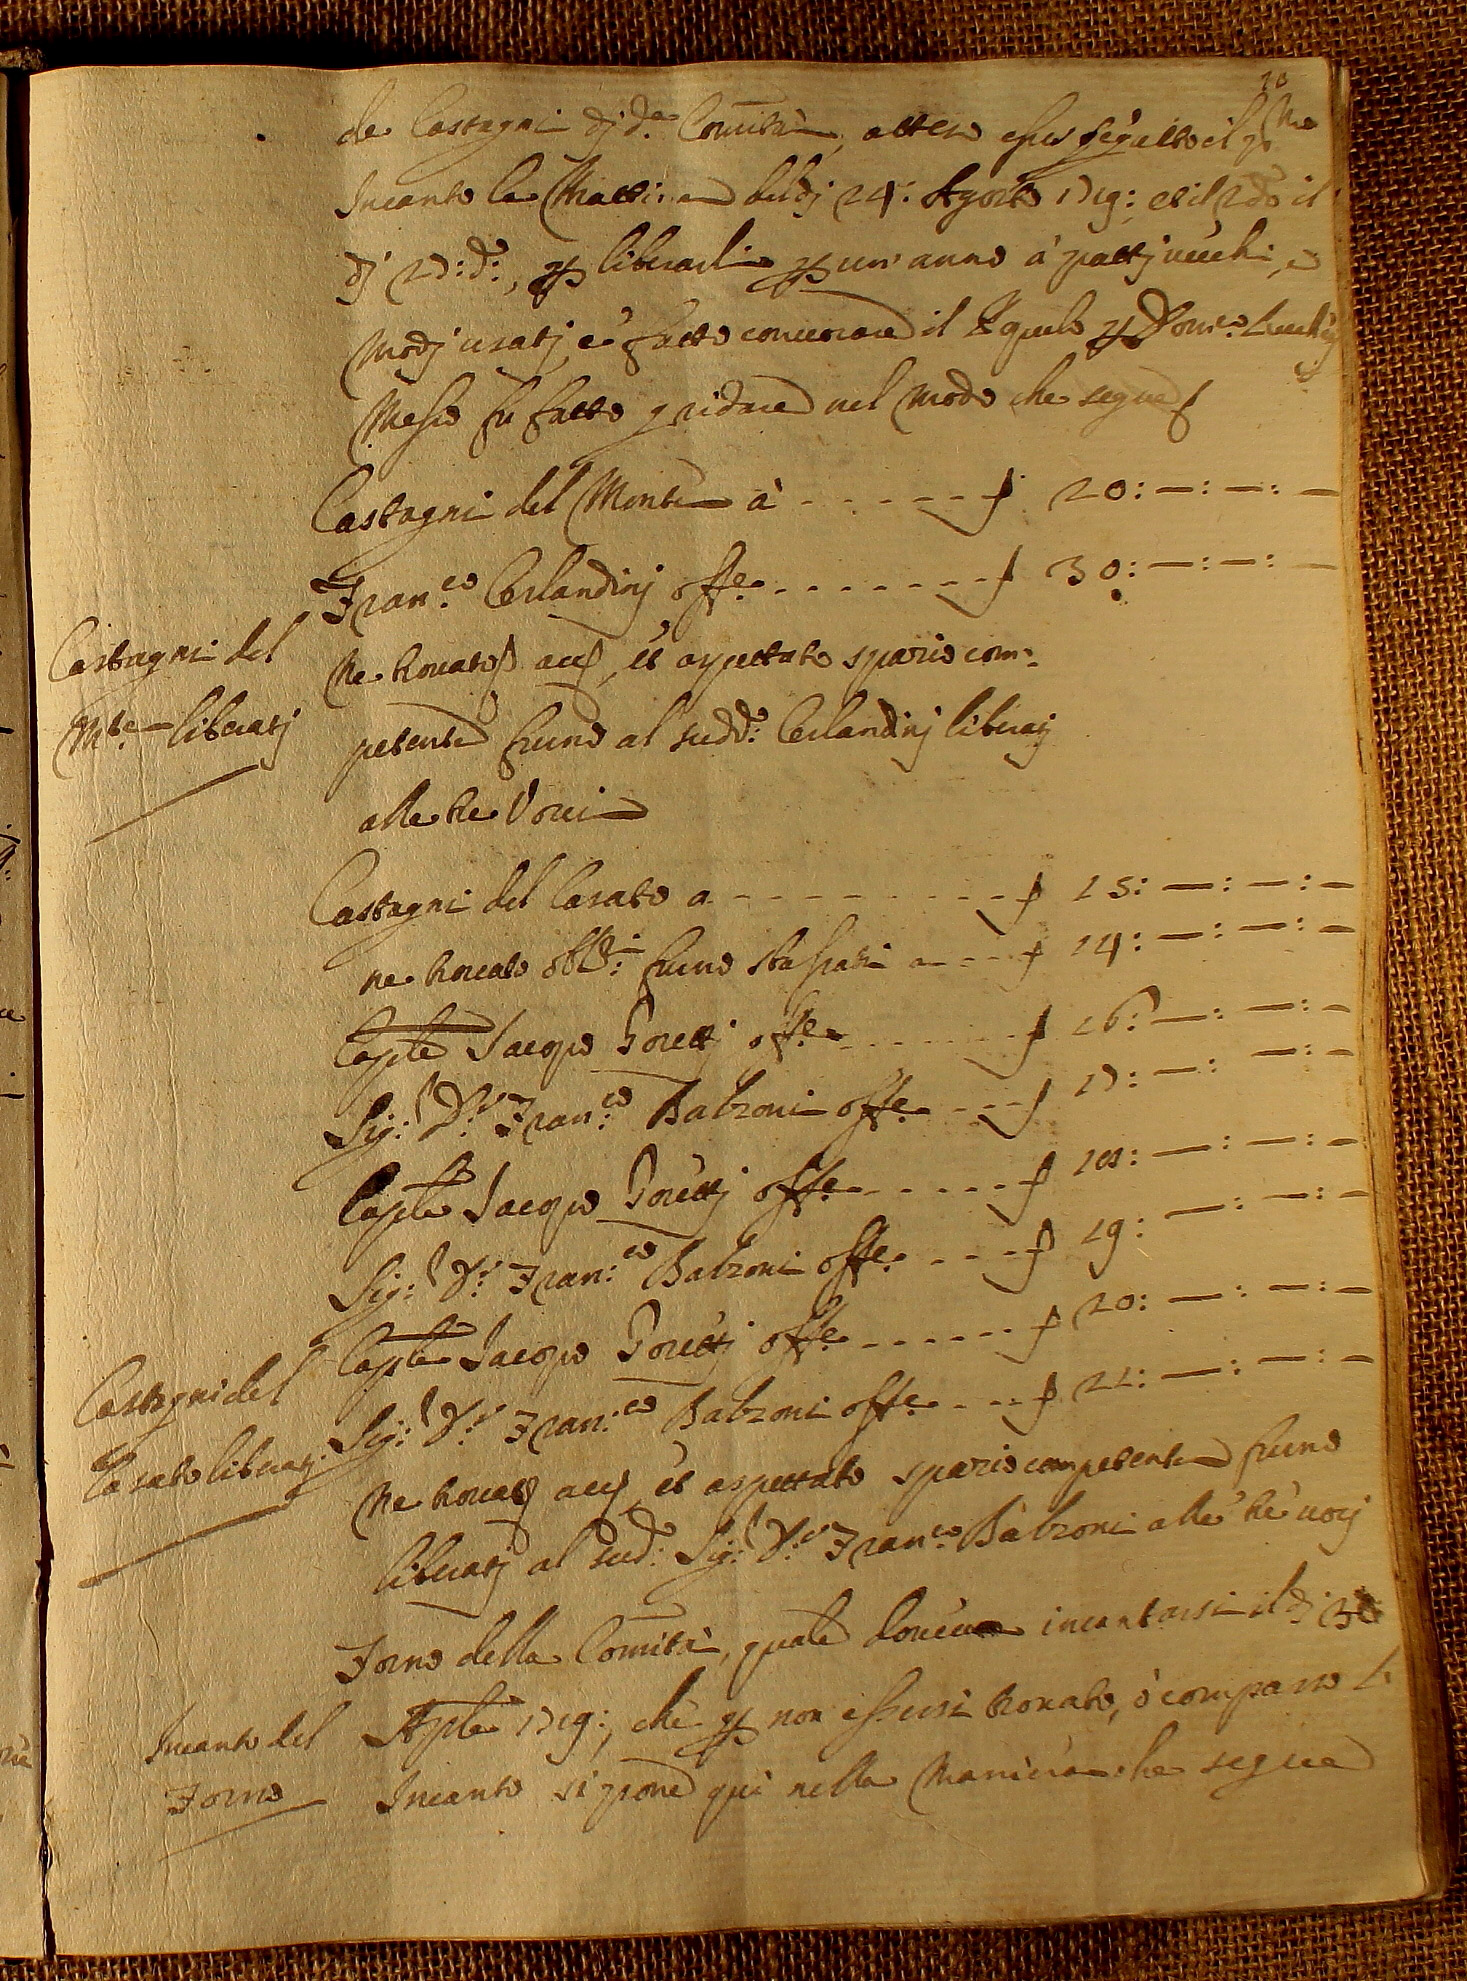 10
de Castagni dj d.a Com̄ità, atteso esser seguito il p.mo
Incanto la Mattina delj 24: Agosto 1719: et il 2do il
dj 27: d.o, per liberarli per un' anno à pattj uechi, e
modj usatj, e fatto concorrere il Popolo per Dom.co
Messo fu fatto gridare nel modo che segue
Castagni del Monte à - - - - - - 20: —: —: —
Fran.co Orlandinj offe. - - - - - - - 30: —: —: —
Castagni del
M.te liberatj
Ne trouatosi acc, et aspettato spazio com-
petente furno al sudd.o Orlandinj liberatj
alle tre Voci
Castagni del Casato a - - - - - - - - 15: —: —: —
ne trouato obl.i furno sbassati a - - - 14: —: —: —
Caple Jacopo Porettj offe. - - - - - - 16: —: —: —
Sig: D.r Fran.co Balzoni offe. - - - 17: —: —: —
Caple Jacopo Porettj offe. - - - - - 18: —: —: —
Sig: D.r Fran.co Balzoni offe. - - - - 19: —: —: —
Caple Jacopo Porettj offe. - - - - - - 20: —: —: —
Sig: D.r Fran.co Balzoni offe. - - - 21: —: —: —
Castagni del
Casato liberatj
Ne trouatosi acc, et aspettato spazio competente furno
liberatj al sud.o Sig: D.r Fran.co Balzoni alle tre uocj
Forno della Com̄ità, quale doueua incantarsi il dj 30
Incanto del
Forno
Aple 1719:, che per non essersi trouato, ò comparso
Incanto si pone qui nella maniera che segue